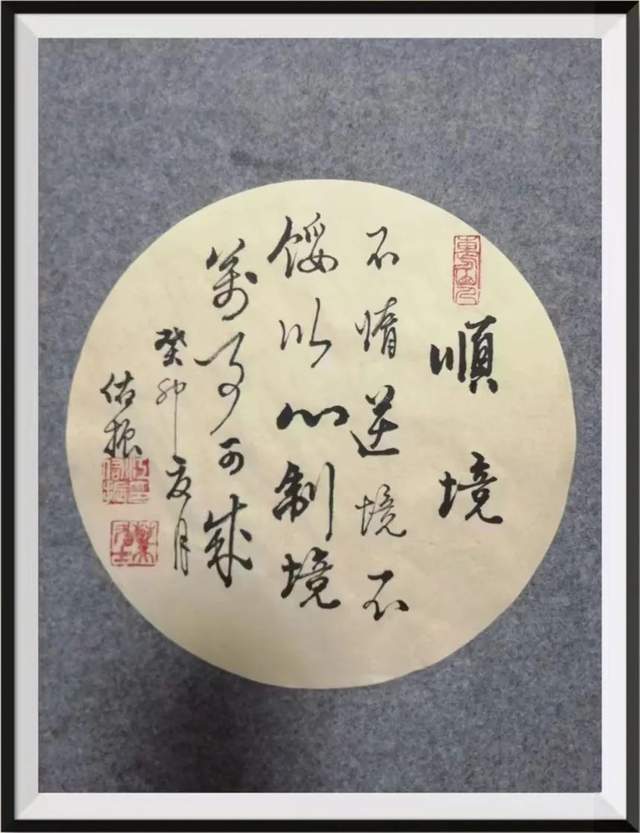 順境
不惰逆境不
餒以心制境
萬事可成
癸卯夏月
佑振